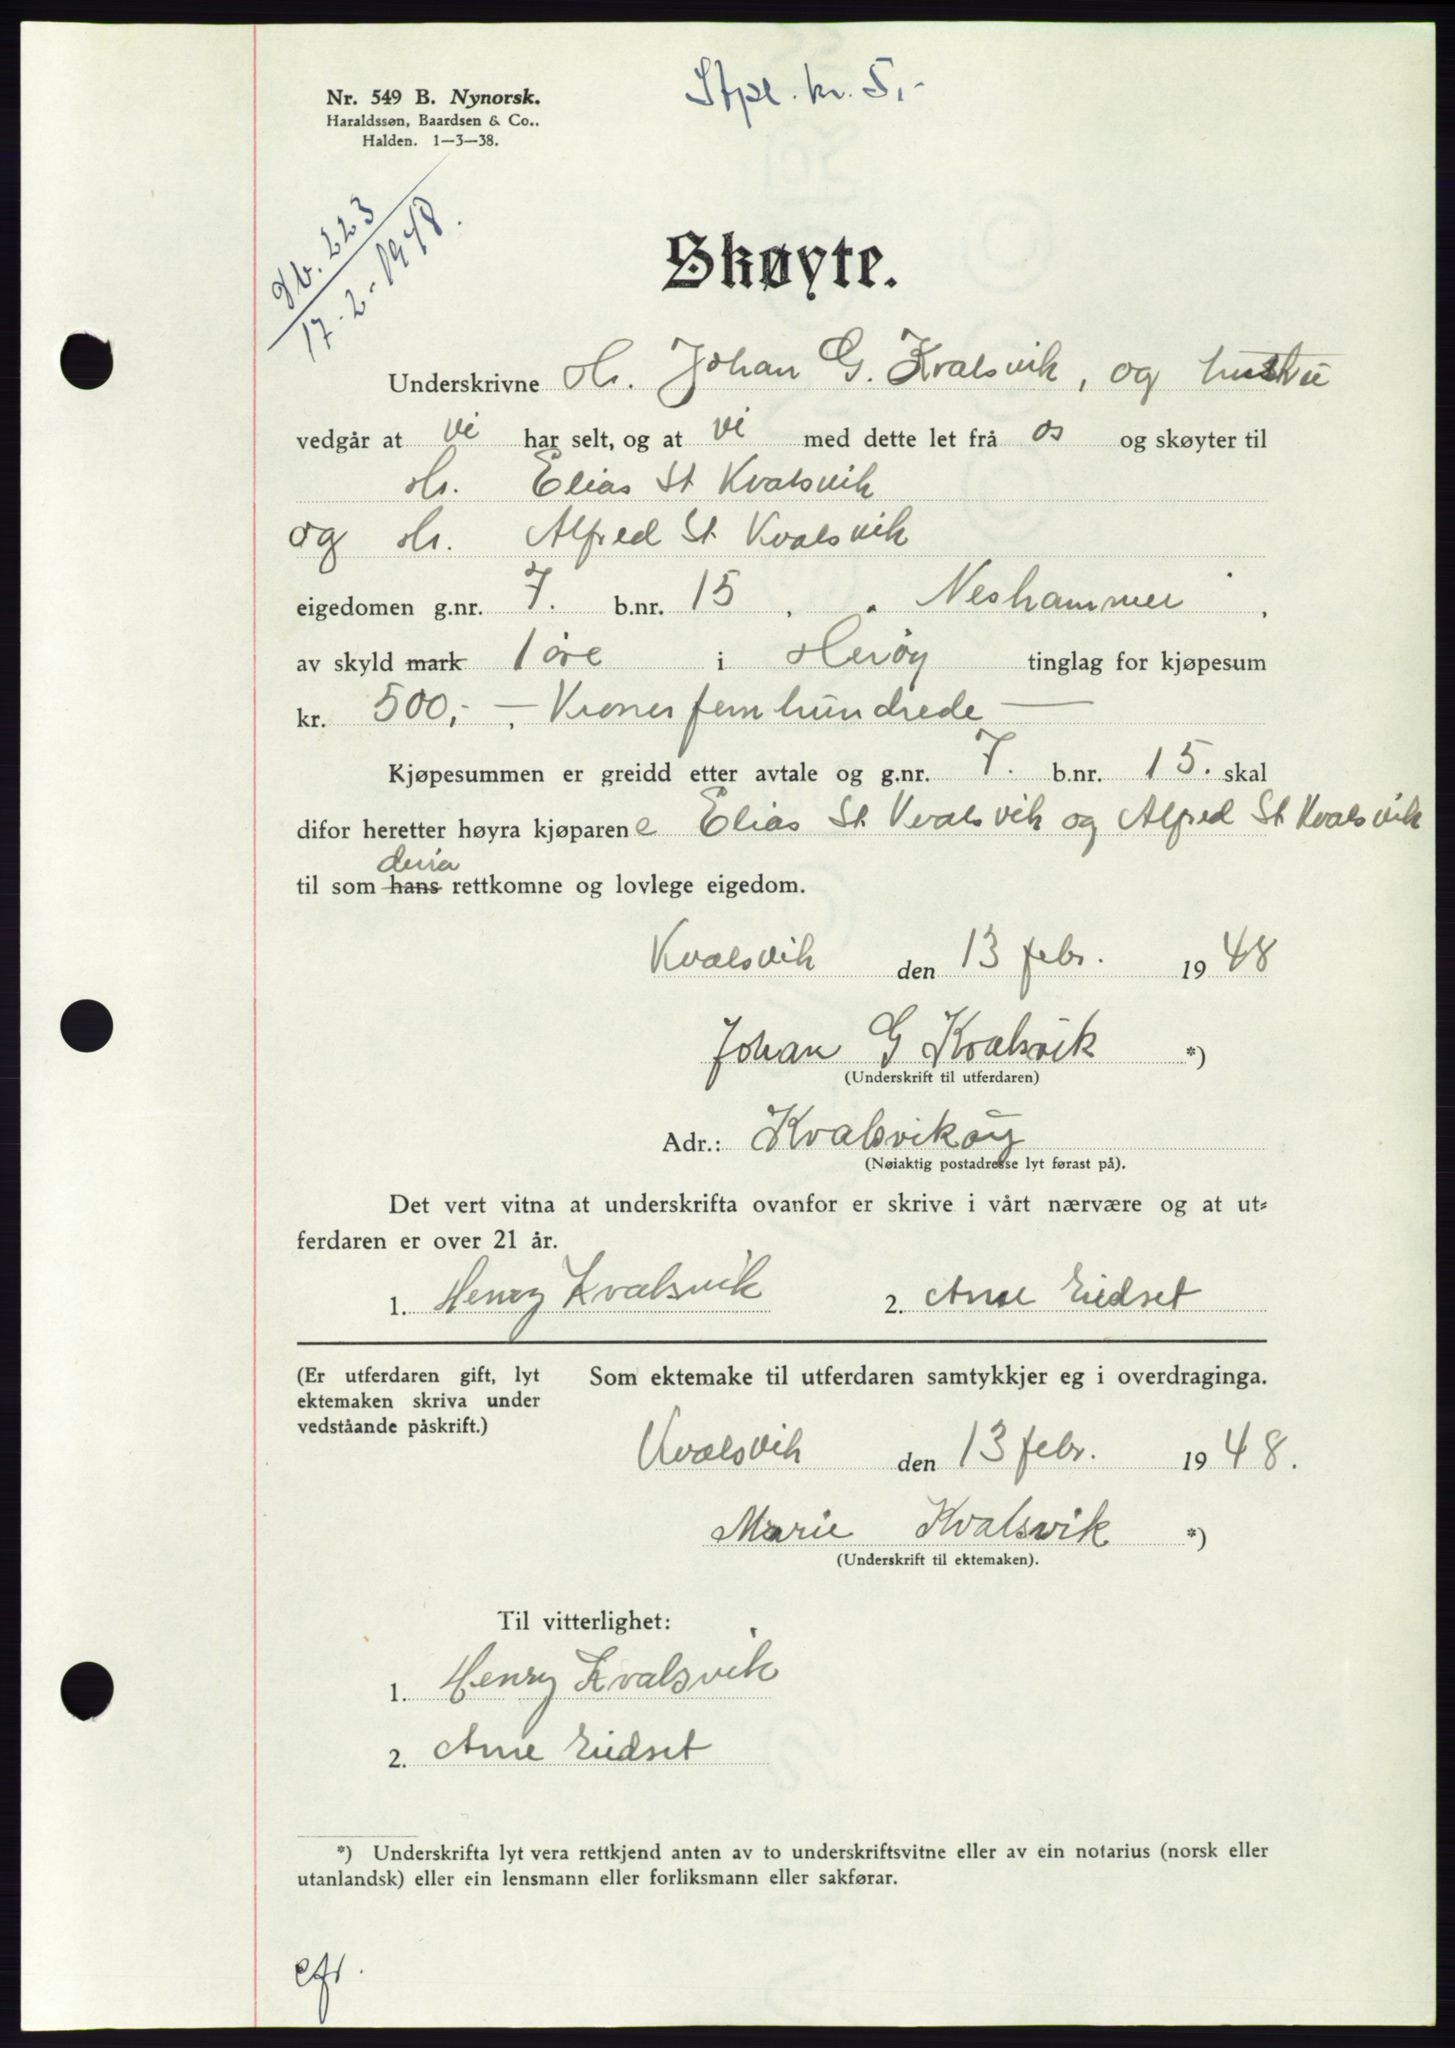 Stpl. kr. 5,-
Nr. 549 B. Nynorsk.
Haraldssøn, Baardsen & Co..
Halden. 1—3—38.
Db. 223
17-2-1948.
Skøyte.
Underskrivne Hr. Johan G. Kvalsvik, og hustru
vedgår at vi har selt, og at vi med dette let frå os og skøyter til
Hr. Elias St Kvalsvik
og Hr. Alfred St Kvalsvik
eigedomen g.nr. 7. b.nr. 15 , „ Neshammer ,
av skyld mark 1 øre i Herøy tinglag for kjøpesum
kr. 500,- — . Kroner fem hundrede —
Kjøpesummen er greidd etter avtale og g.nr. 7. b.nr. 15. skal
difor heretter høyra kjøparene Elias St Kvalsvik og Alfred St Kvalsvik
deira
til som hans rettkomne og lovlege eigedom.
Kvalsvik den 13 febr. 1948
Johan G Kvalsvik *)
(Underskrift til utferdaren)
Adr.: Kvalsvikøy
(Nøiaktig postadresse lyt førast på).
Det vert vitna at underskrifta ovanfor er skrive i vårt nærvære og at ut=
ferdaren er over 21 år.
1. Henry Kvalsvik 2. Arne Eidset
(Er utferdaren gift, lyt
ektemaken skriva under
vedståande påskrift.)
Som ektemake til utferdaren samtykkjer eg i overdraginga.
Kvalsvik den 13 febr. 1948.
Marie Kvalsvik *)
(Underskrift til ektemaken).
Til vitterlighet:
1. Henry Kvalsvik
2. Arne Eidset
*) Underskrifta lyt vera rettkjend anten av to underskriftsvitne eller av ein notarius (norsk eller
utanlandsk) eller ein lensmann eller forliksmann eller sakførar.